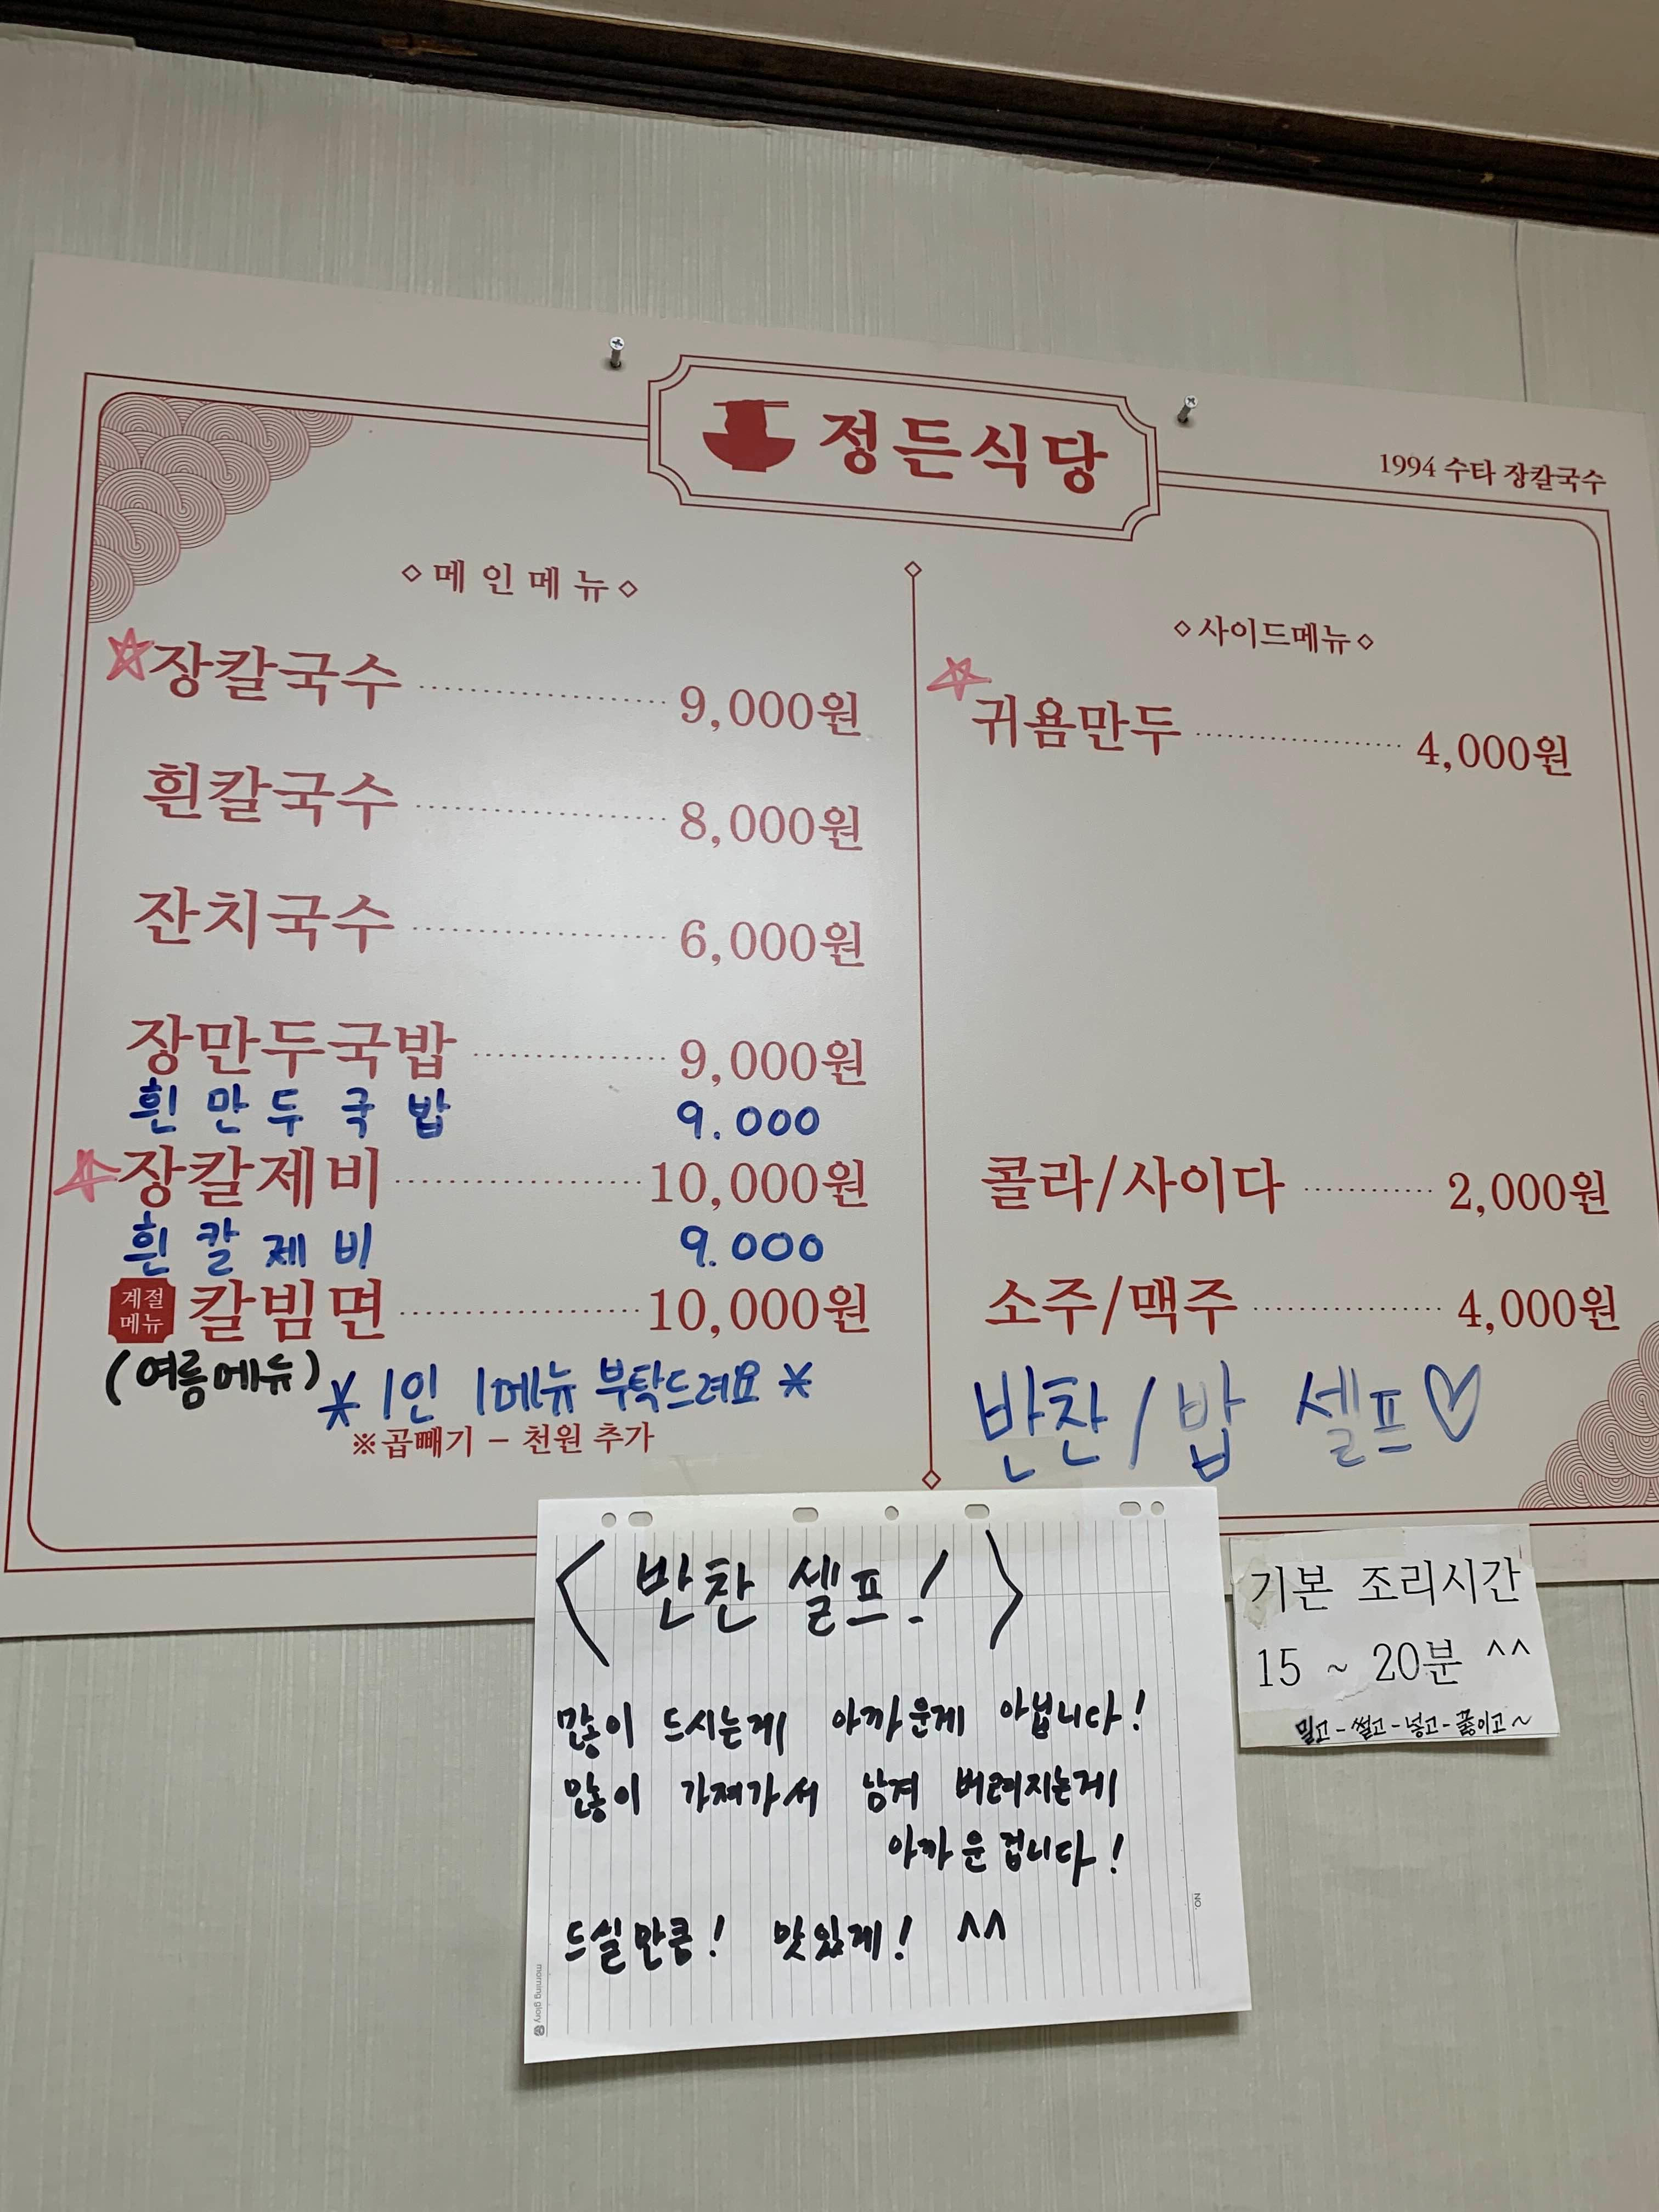 정든식당
1994 수타 장칼국수
◇메인메뉴◇
☆장칼국수 9,000원
흰칼국수 8,000원
잔치국수 6,000원
장만두국밥 9,000원
흰만두국밥 9.000
☆장칼제비 10,000원
흰칼제비 9.000
계절메뉴 칼빔면 10,000원
(여름메뉴)
* 1인 1메뉴 부탁드려요 *
※곱빼기 - 천원 추가
◇사이드메뉴◇
☆귀욤만두 4,000원
콜라/사이다 2,000원
소주/맥주 4,000원
반찬/밥 셀프♡
<반찬 셀프!>
많이 드시는게 아까운게 아닙니다!
많이 가져가서 남겨 버려지는게
아까운 겁니다!
드실만큼! 맛있게! ^^
NO.
morning glory
기본 조리시간
15 ~ 20분 ^^
밀고-썰고-넣고-끓이고~